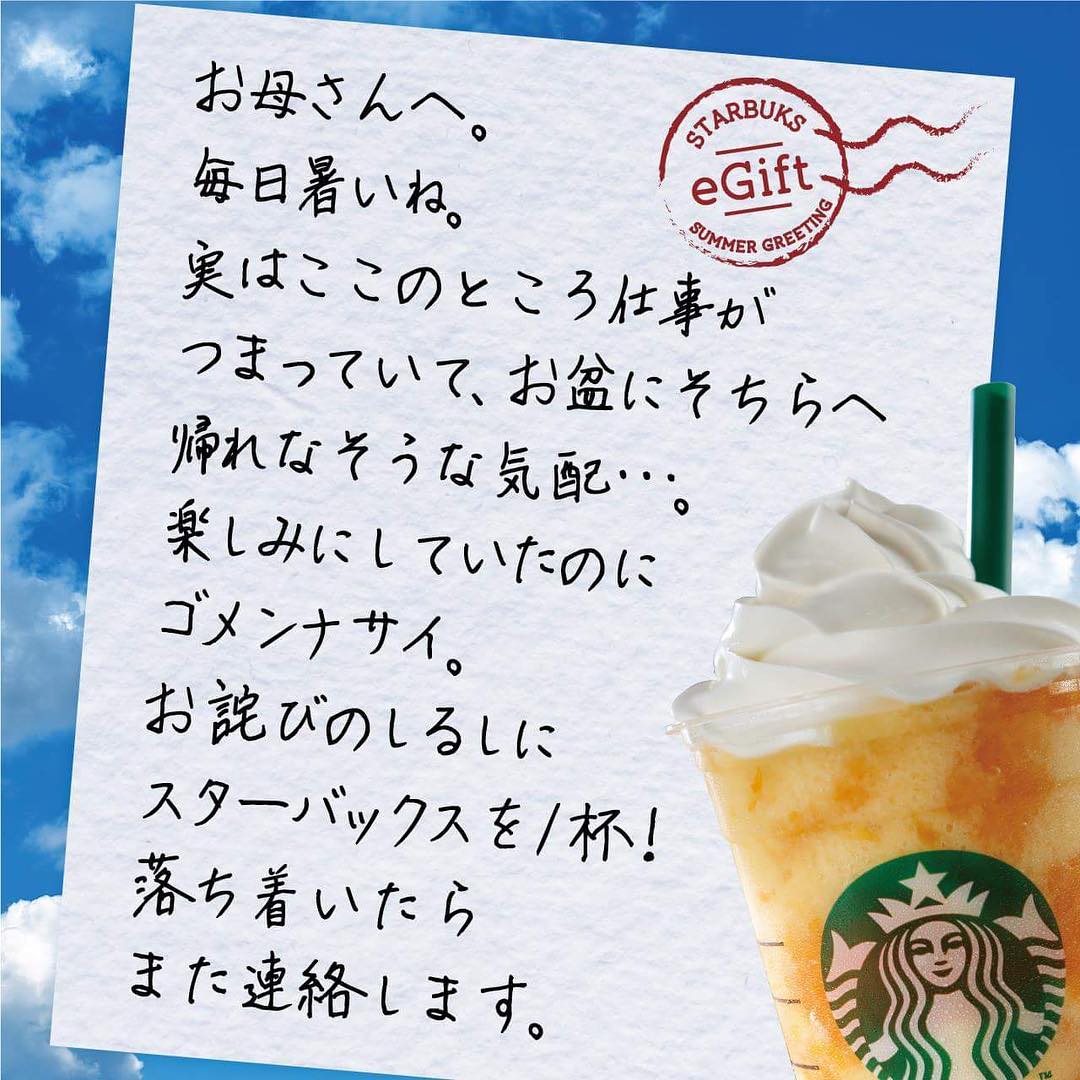 お母さんへ。
毎日暑いね。
実はここのところ仕事が
つまっていて、お盆にそちらへ
帰れなそうな気配…。
楽しみにしていたのに
ゴメンナサイ。
お詫びのしるしに
スターバックスを1杯!
落ち着いたら
また連絡します。
STARBUKS
eGift
SUMMER GREETING
TM